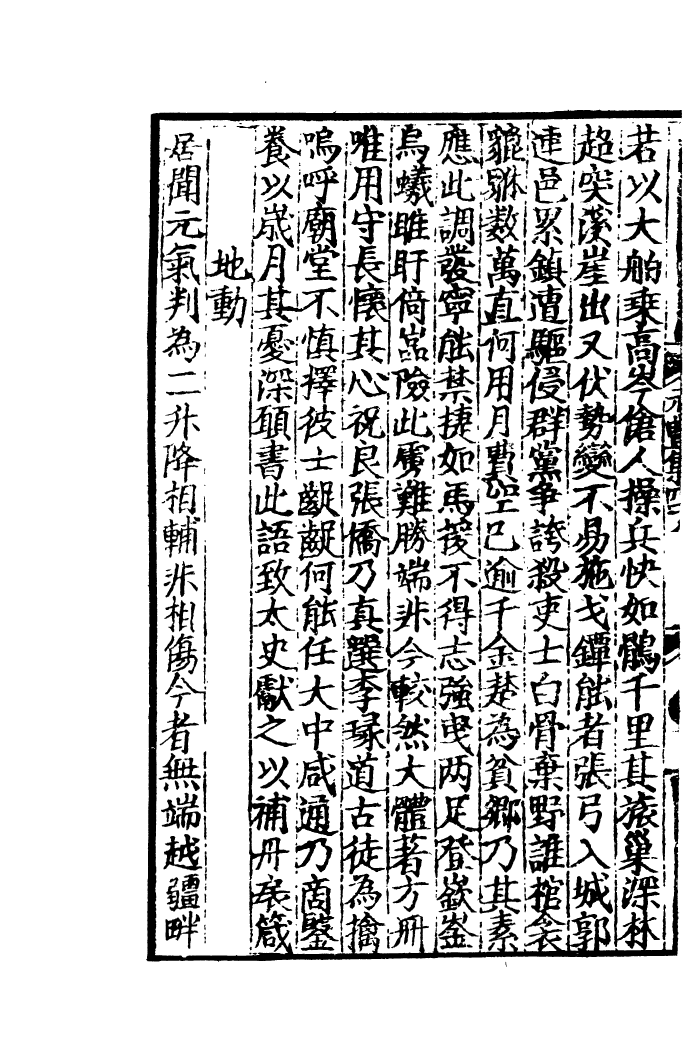 若以大舶乗高岑傖人操兵快如鶻千里其旅巢深林
超突溪崖出又伏勢變不易施戈鐔能者張弓入城郭
連邑累鎮遭驅侵群黨争誇殺吏士白骨棄野誰棺衾
貔貅数萬直何用月費空已逾千金楚為貧鄉乃其素
應此調發寧能禁捷如馬筏不得志強曳两足登嶔崟
烏蠻睢盱倚嵓險此虜難勝端非今較然大體著方冊
唯用守長懷其心祝良張憍乃真選李琭道古徒為擒
嗚呼廟堂不慎擇彼士齪齪何能任大中咸通乃商鑒
養以歳月其憂深願書此語致太史獻之以補丹扆箴
地動
居聞元氣判為二升降相輔非相傷今者無端越疆畔